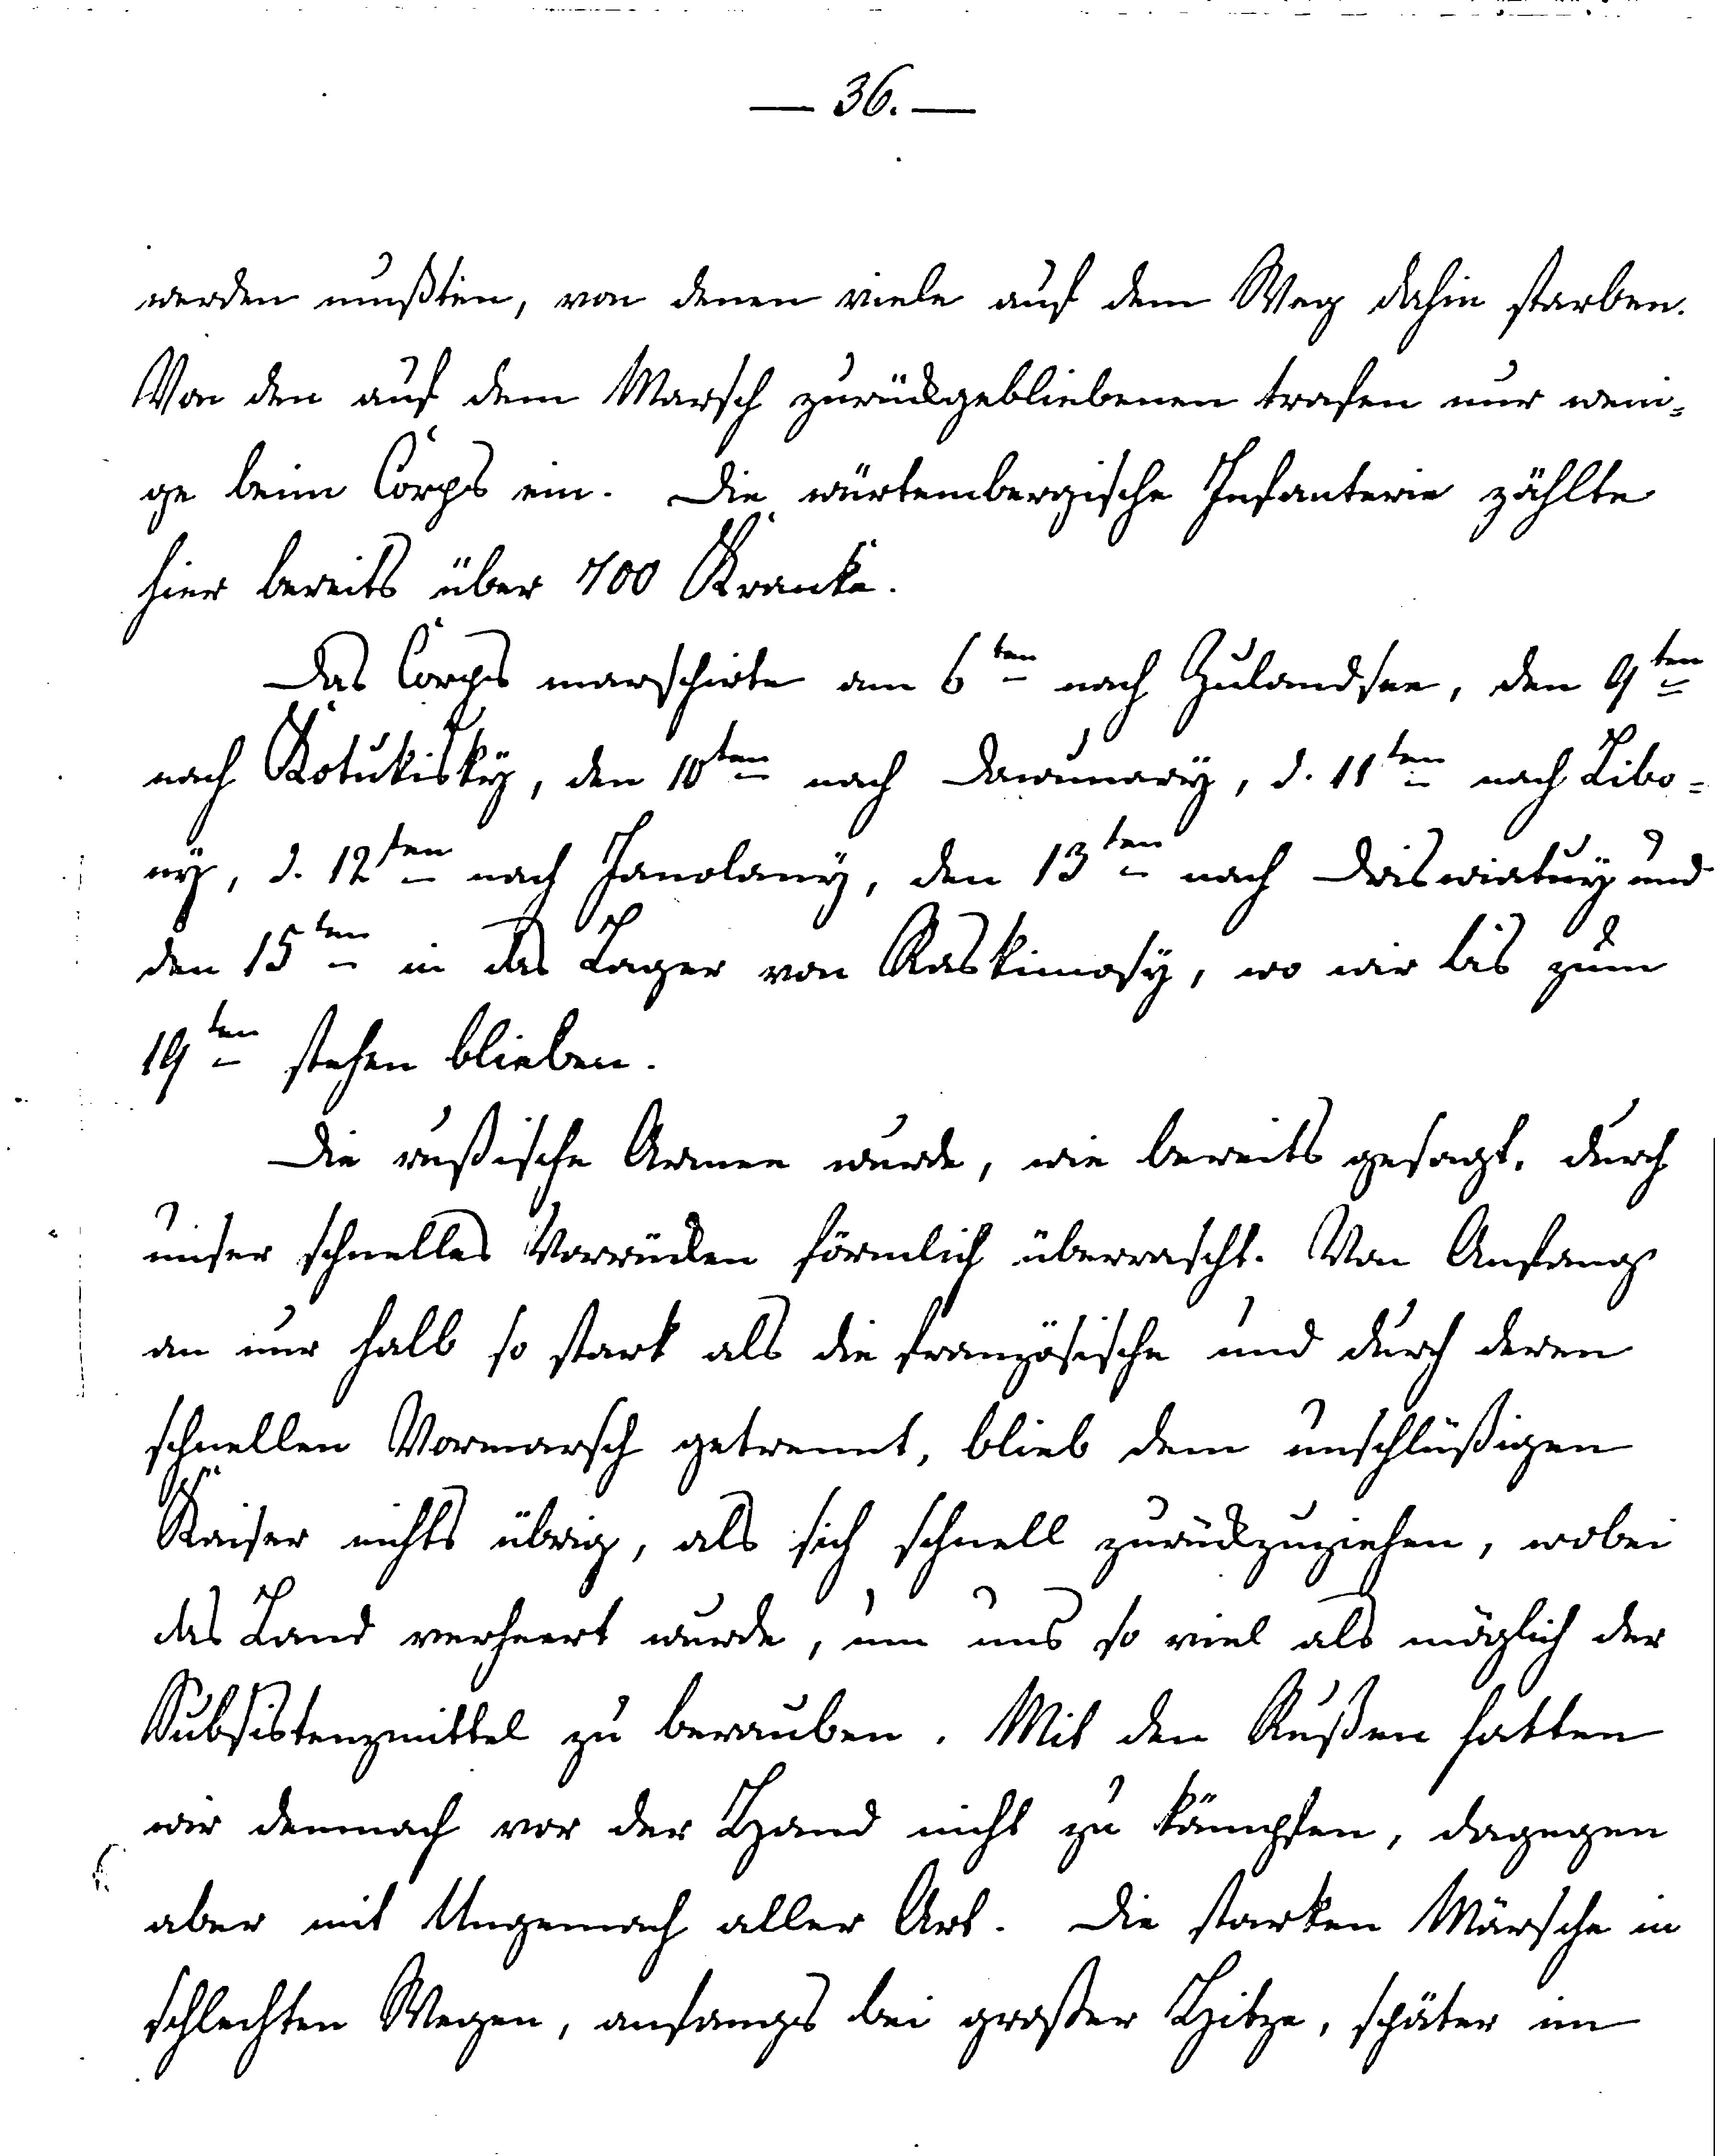 — 36. —
werden mußten, von denen viele auf dem Weg dahin starben.
Von den auf dem Marsch zurückgebliebenen trafen nur weni-
ge beim Corps ein. Die würtembergische Infanterie zählte
hier bereits über 700 Kranke.
Das Corps marschirte am 6ten nach Zulandsee, den 9ten
nach Kotukisky, den 10ten nach Daunary, d. 11ten nach Libo-
ny, d. 12ten nach Janolany, den 13ten nach Driswiatuy und
den 15ten in das Lager von Raskimosy, wo wir bis zum
19ten stehen blieben.
Die rußische Armee wurde, wie bereits gesagt, durch
unser schnelles Vorrücken förmlich überrascht. Von Anfang
an nur halb so stark als die französische und durch deren
schnellen Vormarsch getrennt, blieb dem unschlüßigen
Kaiser nichts übrig, als sich schnell zurückzuziehen, wobei
das Land verheert wurde, um uns so viel als möglich der
Subsistenzmittel zu berauben. Mit den Rußen hatten
wir demnach vor der Hand nicht zu kämpfen, dagegen
aber mit Ungemach aller Art. Die starken Märsche in
schlechten Wegen, anfangs bei großer Hitze, später im